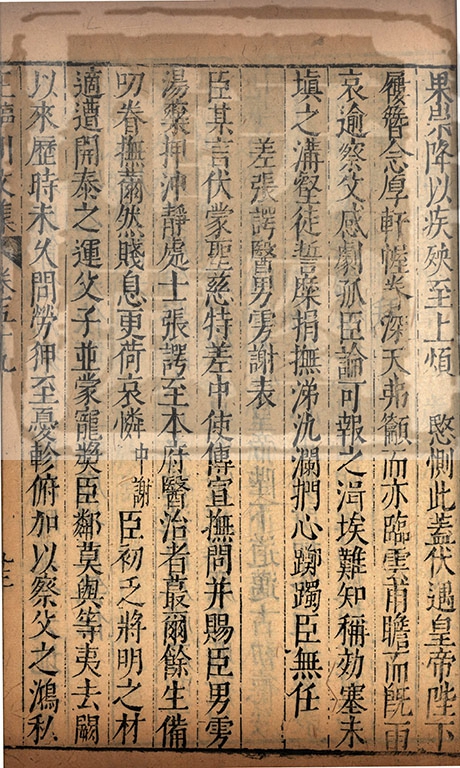 果祟降以疾殃至上煩　愍惻此蓋伏遇皇帝陛下
履簪念厚軒幄眷深天弗籲而亦臨雲甫瞻而旣雨
哀逾察父感劇孤臣論可報之涓埃難知稱効塞未
塡之溝壑徒誓糜捐撫涕汍瀾捫心躑躅臣無任
差張諤醫男雱謝表
臣某言伏蒙聖慈特差中使傳宣撫問并賜臣男雱
湯藥押沖靜處士張諤至本府醫治者蕞爾餘生備
叨眷撫薾然賤息更荷哀憐中謝臣初乏將明之材
適遭開泰之運父子並蒙寵奬臣鄰莫與等夷去闕
以來歷時未久問勞狎至憂軫俯加以察父之鴻私
王臨川文集 卷五十九